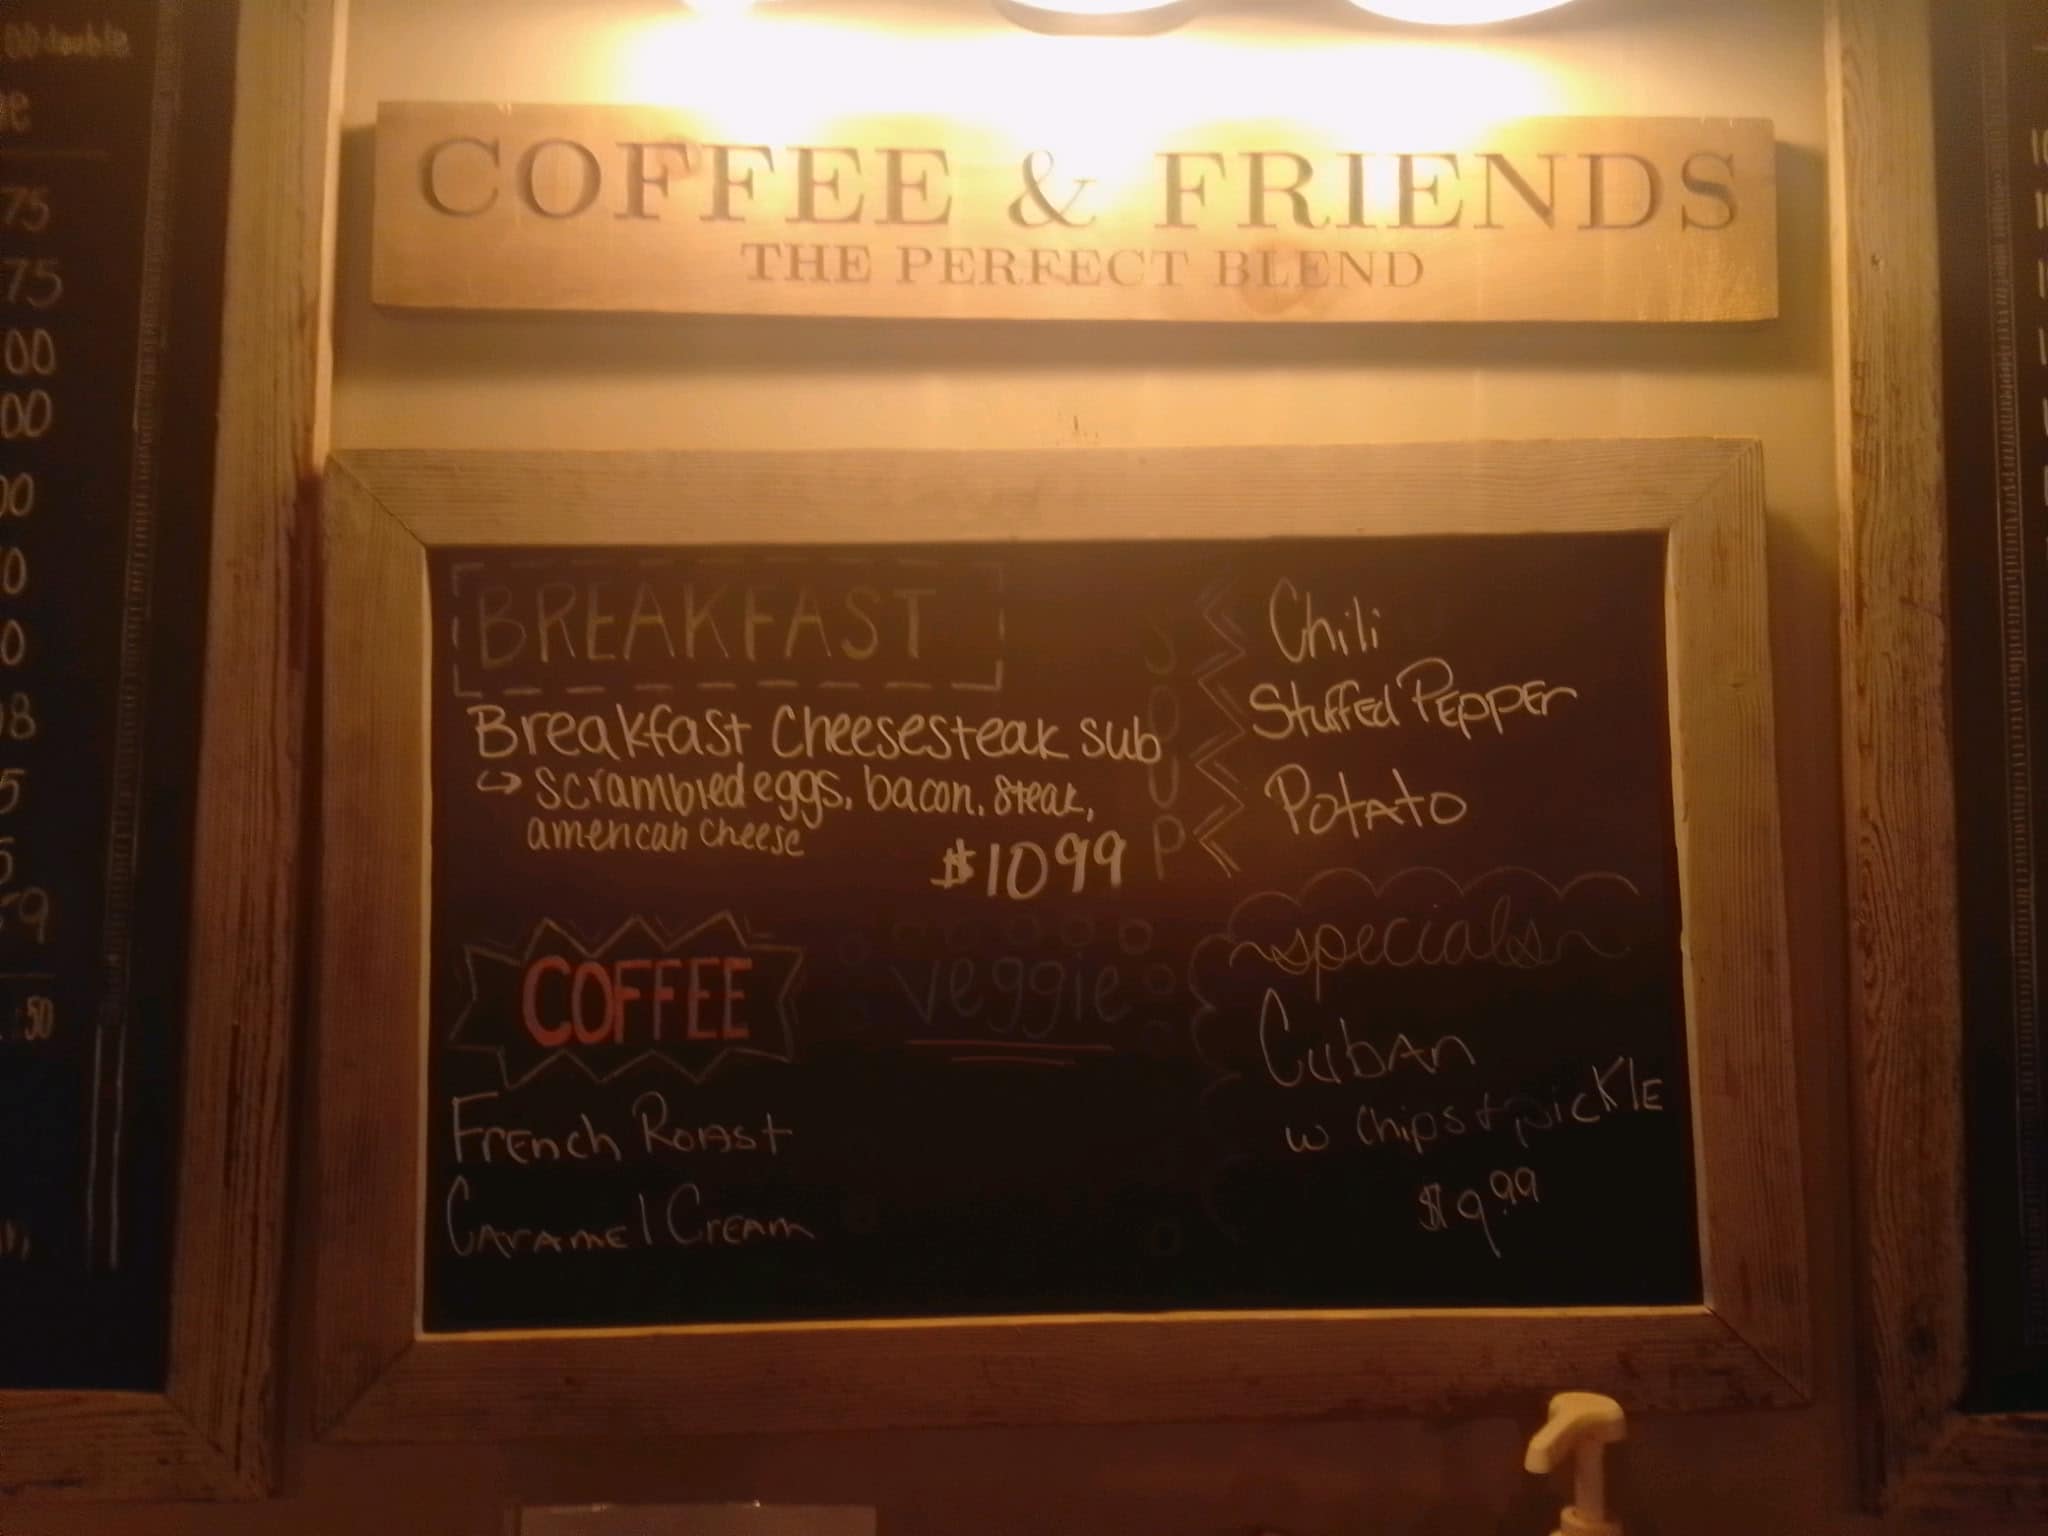 COFFEE & FRIENDS
THE PERFECT BLEND
BREAKFAST
Breakfast Cheesesteak sub
↪ scrambled eggs, bacon, steak,
american cheese
$10 99
SOUP
Chili
Stuffed Pepper
Potato
COFFEE
French Roast
Caramel Cream
veggie
~specials~
Cuban
w chips + pickle
$9.99
75
75
00
00
00
0
0
98
5
5
50